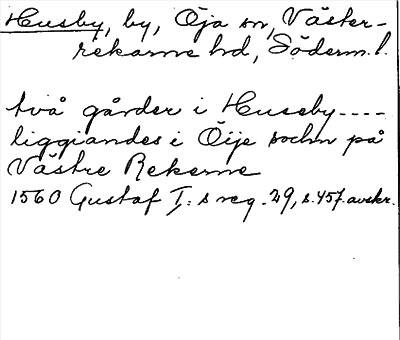 Husby, by, Öja sn, Väster-
rekarne hd, Söderm. l.
två gårder i Huseby----
liggiandes i Öije sochn på
Västre Rekerne
1560 Gustaf I:s reg. 29, s. 457. avskr.